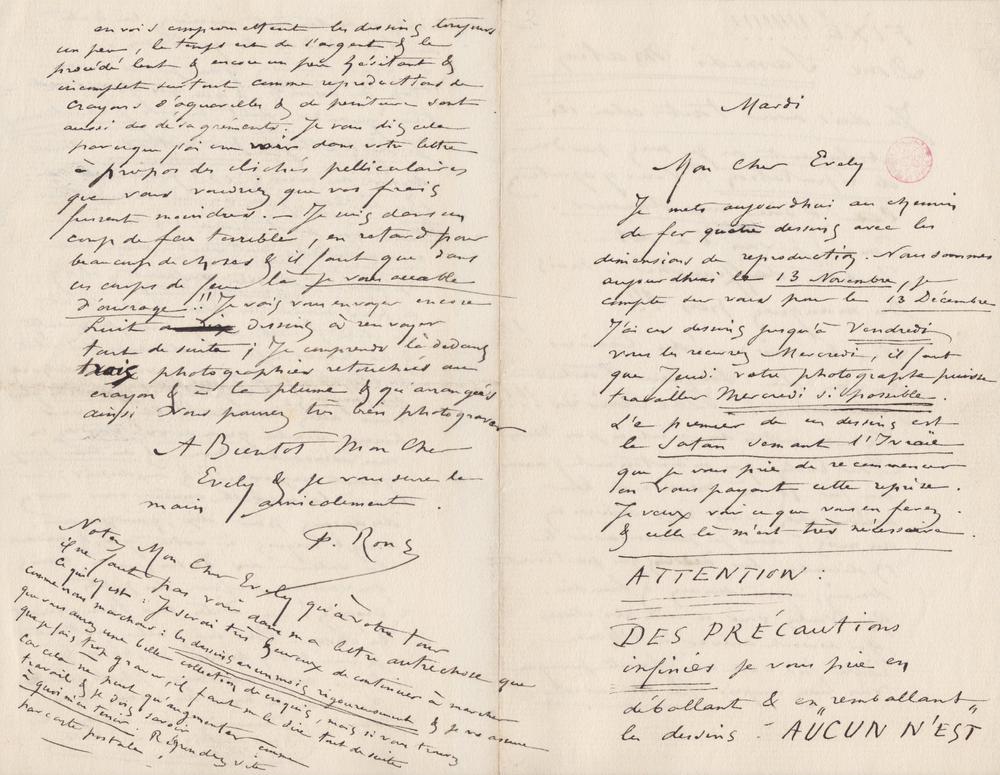 Mardi
Mon Cher Evely
Je mets aujourdhui au chemin
de fer quatre dessins avec les
dimensions de reproduction. Nous sommes
aujourdhui le 13 Novembre, je
compte sur vous pour le 13 Décembre
J'ai ces dessins jusqu'à Vendredi
vous les recevrez Mercredi, il faut
que Jeudi votre photographe puisse
travailler Mercredi si possible.
Le premier de ces dessins est
le Satan semant l'Ivraie
que je vous prie de recommencer
en vous payant cette reprise.
Je veux voir ce que vous en ferez
& celle là m'est très nécessaire.
ATTENTION :
DES PRÉCautions
infinies je vous prie en
déballant & en „remballant"
les dessins - AUCUN N'EST
envois compromettent les dessins toujours
un peu, le temps est de l'argent & le
procédé lent & encore un peu hésitant &
incomplet surtout comme reproductions de
crayons d'aquarelles & de peinture sont
aussi des desagréments. Je vous dis cela
parceque j'ai cru voir dans votre lettre
à propos des clichés pelliculaires
que vous voudriez que vos frais
fussent moindres. — Je suis dans un
coup de feu terrible, en retard pour
beaucoup de choses & il faut que dans
ces coups de feu là je vous accable
d'ouvrage !! Je vais vous envoyer encore
huit dessins à renvoyer
tout de suite ; Je comprends là dedans
trois photographies retouchées au
crayon & à la plume & qu'arrangées
ainsi vous pouvez très bien photograver
A Bientot Mon Cher
Evely & je vous serre la
main amicalement.
F. Rops
Notez Mon Cher Evely qu'à votre tour
il ne faut pas voir dans ma lettre autre chose que
ce qui y est. Je serais très heureux de continuer à marcher
comme nous marchons : les dessins en un mois rigoureusement & je vous assure
que vous aurez une belle collection de croquis, mais si vous trouvez
que je fais trop graver, il faut me le dire tout de suite
car cela ne peut qu'augmenter comme
travail & je dois savoir
à quoi m'en tenir. Répondez vite
par carte postale !